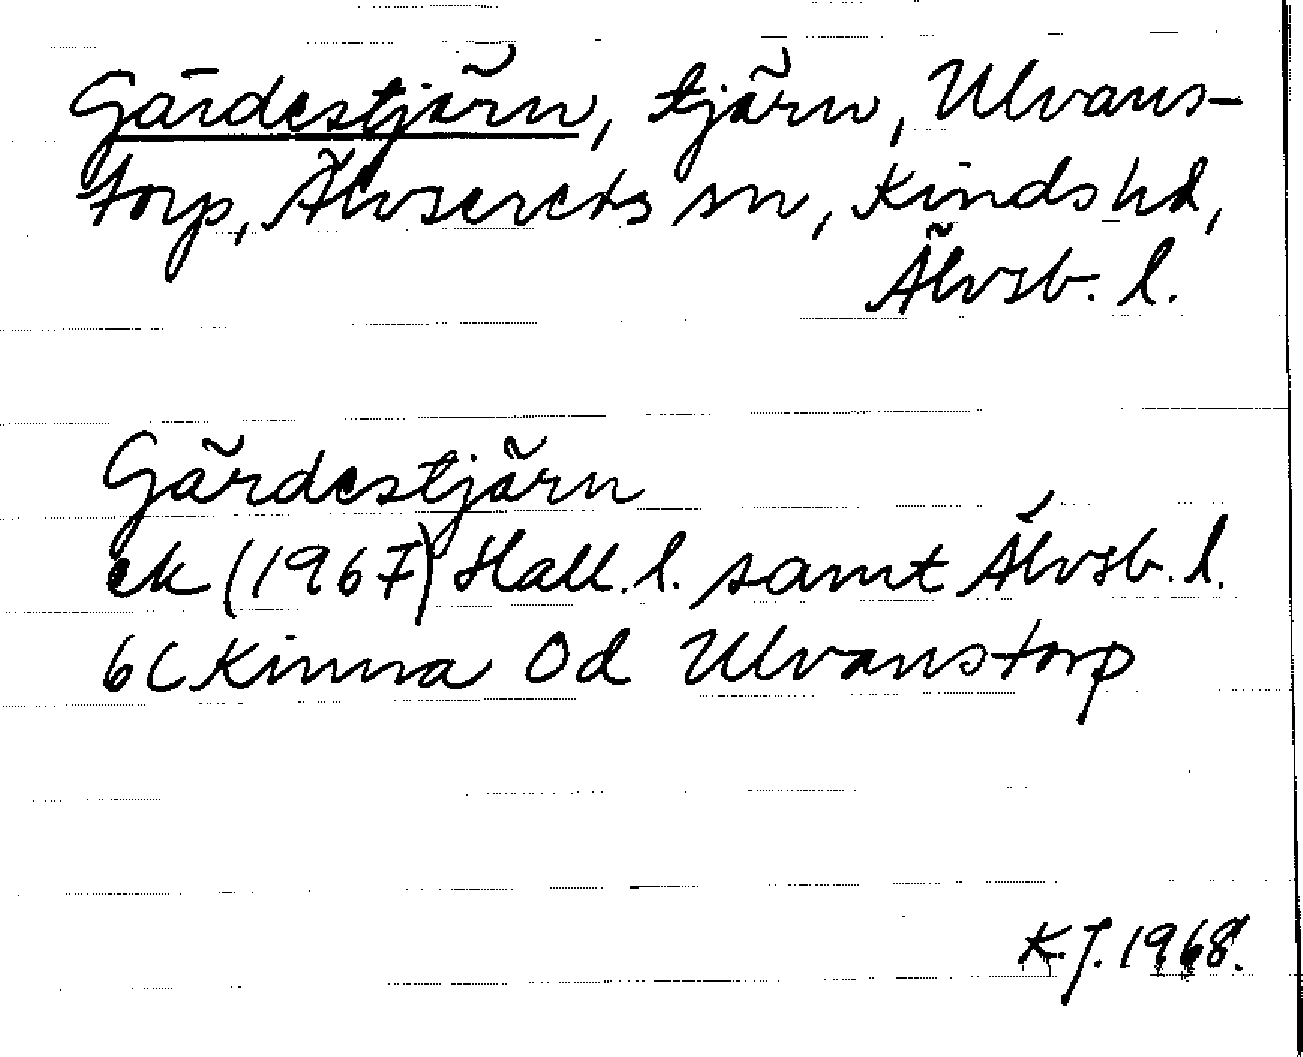 Gärdestjärn, tjärn, Ulvans-
torp, Älvsereds sn, Kinds hd,
Älvsb. l.
Gärdestjärn
ek (1967) Hall. l. samt Älvsb. l.
6C Kinna Od Ulvanstorp
K.J. 1968.